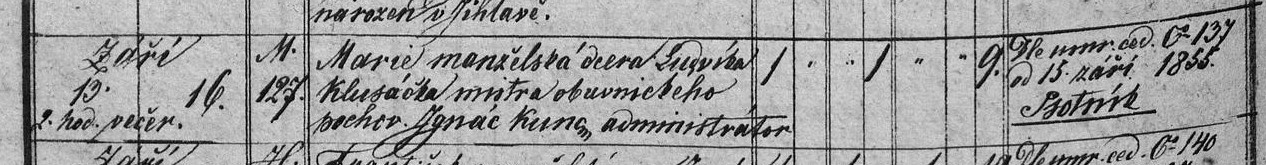 narozen v Jihlavě.
Září
13.
2. hod. večer.
16.
M.
127.
Marie manželská dcera Ludvíka
Klusáčka mistra obuvnického
pochov. Ignác Kunc, administrátor
1 " " 1 " " 9.
Dle umr. ced. Č 137
od 15. září 1855.
Psotník
Září
H.
František
Dle umr. ced. Č 140